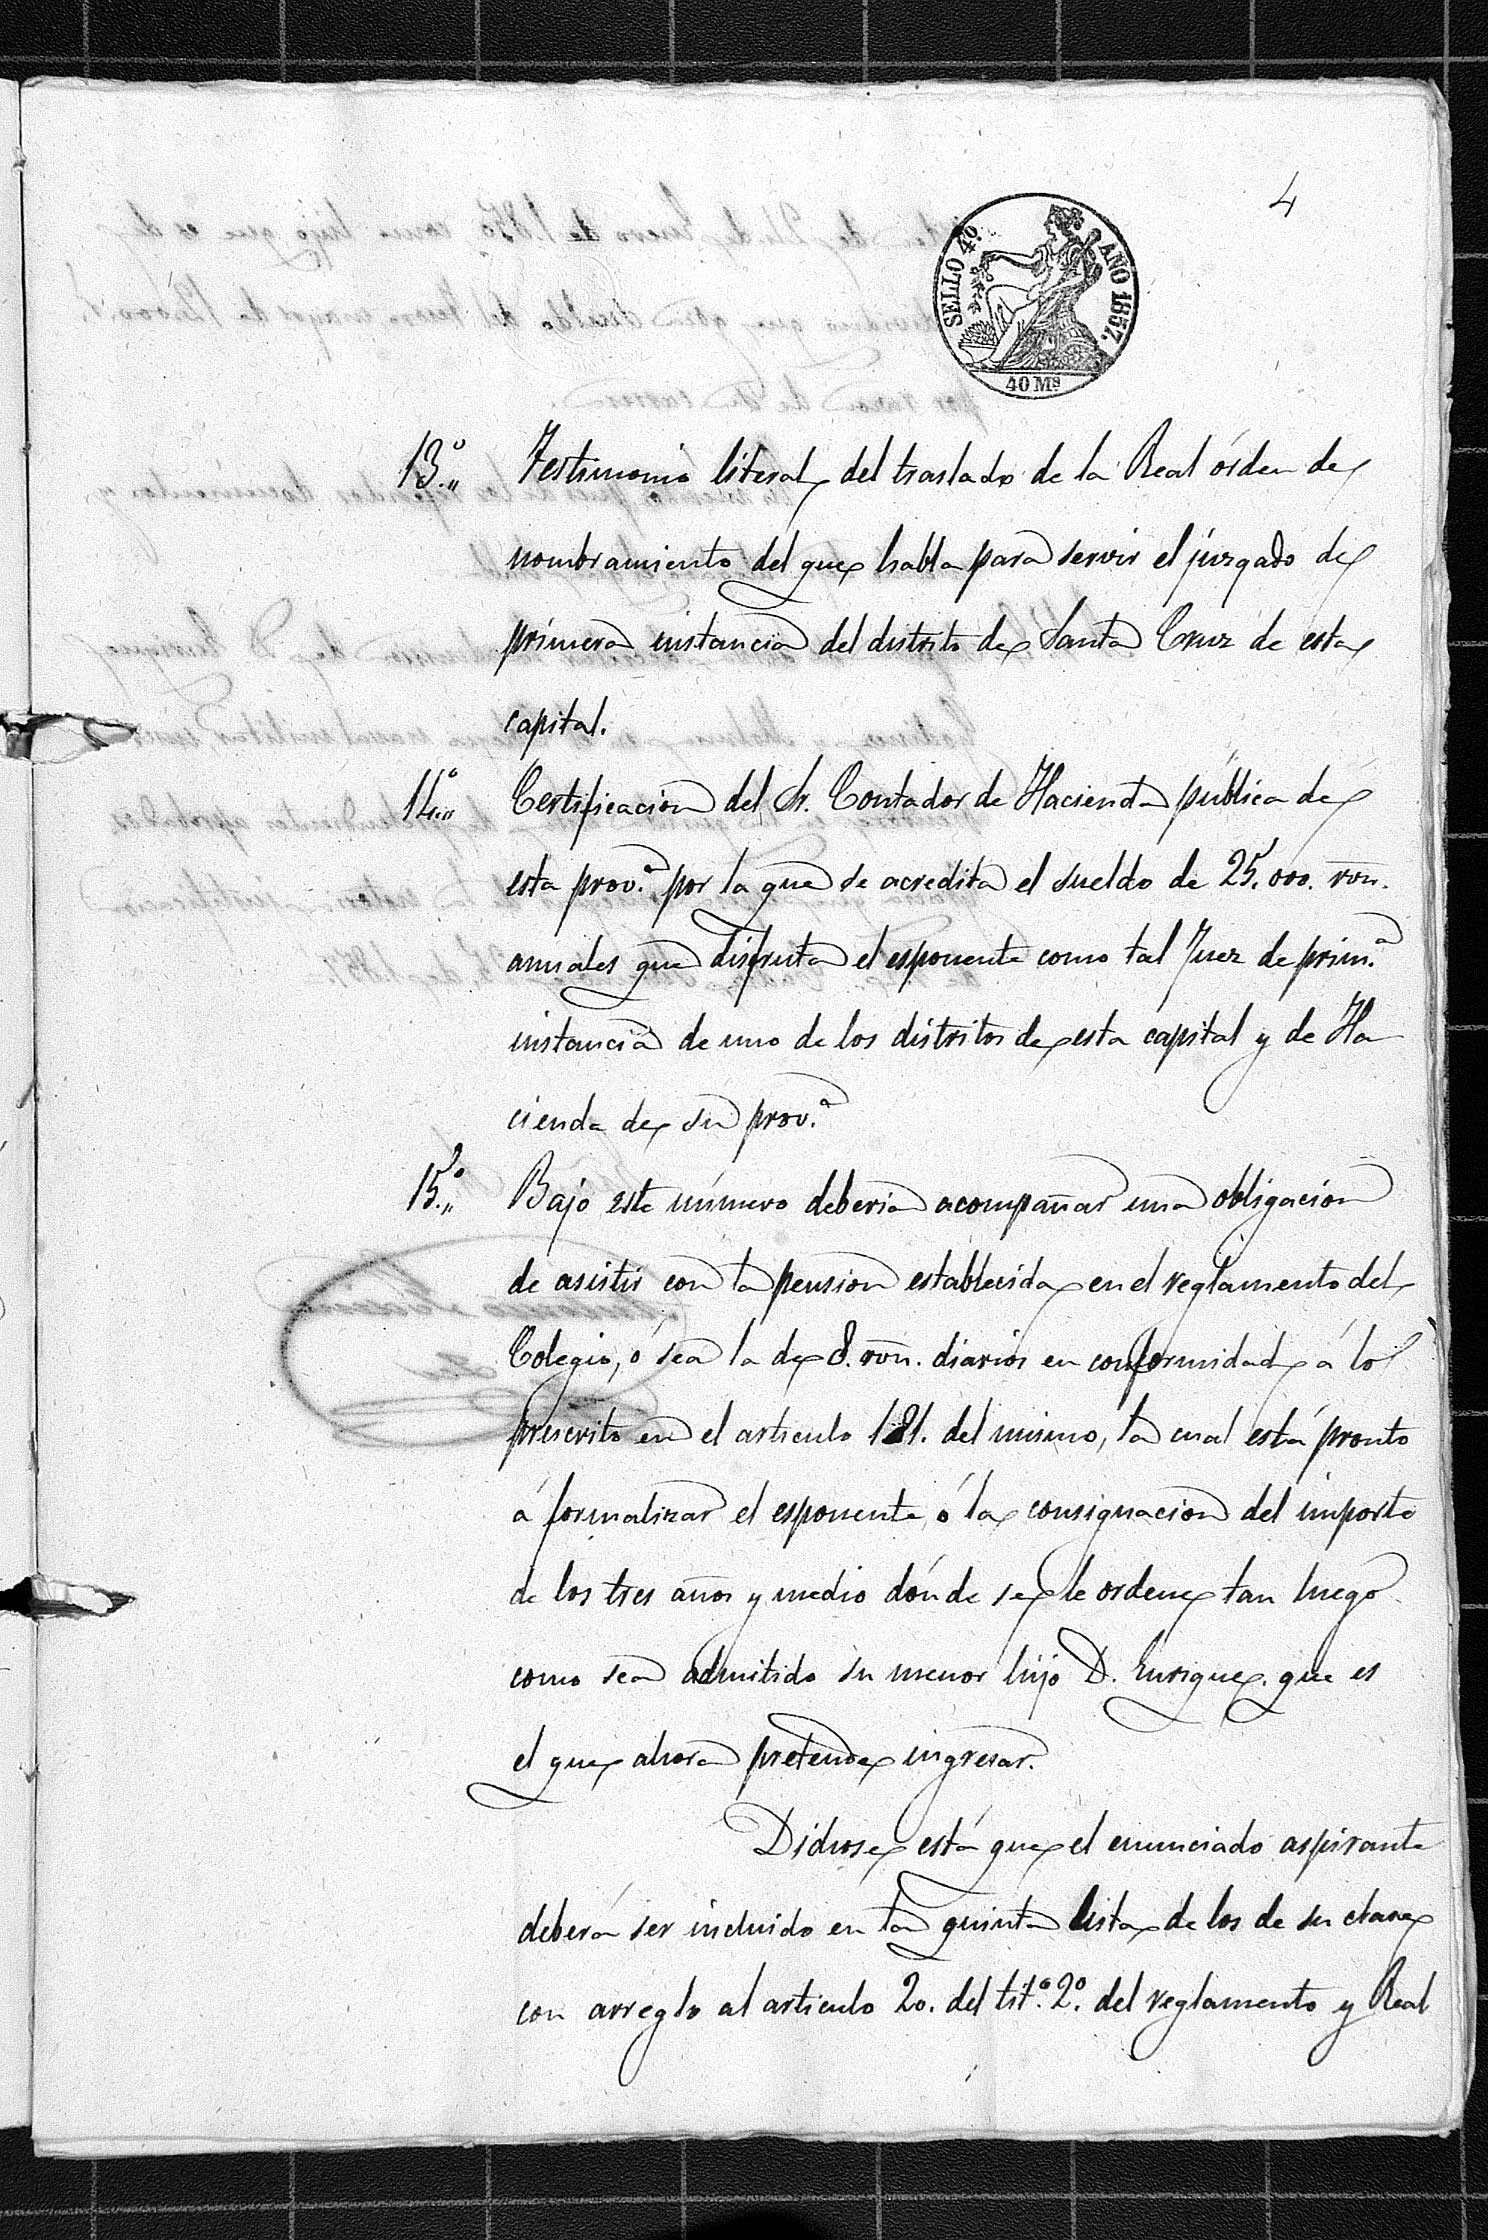 4
SELLO 4º AÑO 1857.
40 Ms
13.º Testimonio literal del traslado de la Real órden de
nombramiento del que habla para servir el juzgado de
primera instancia del distrito de Santa Cruz de esta
capital.
14.º Certificacion del Sr. Contador de Hacienda pública de
esta prov.ª por la que se acredita el sueldo de 25.000. rvn.
anuales que disfruta el esponente como tal Juez de prim.ª
instancia de uno de los distritos de esta capital y de Ha
cienda de su prov.ª
15.º Bajo este número deberia acompañar una obligacion
de asistir con la pension establecida en el reglamento del
Colegio, ó sea la de 8. rvn. diarios en conformidad á lo
prescrito en el articulo 181. del mismo, la cual está pronto
á formalizar el esponente, ó la consignacion del importe
de los tres años y medio dónde se le ordene tan luego
como sea admitido su menor hijo D. Enrique. que es
el que ahora pretende ingresar.
Dichose está que el enunciado aspirante
deberá ser incluido en la quinta lista de los de su clase
con arreglo al articulo 20. del tít.º 2.º del reglamento y Real